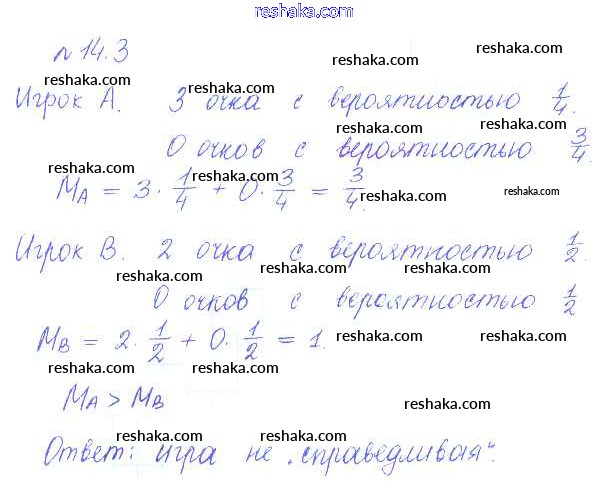 reshaka.com
№ 14.3
reshaka.com reshaka.com reshaka.com
Игрок А. 3 очка с вероятностью 1/4.
reshaka.com reshaka.com reshaka.com
0 очков с вероятностью 3/4
reshaka.com reshaka.com reshaka.com
M_A = 3 · 1/4 + 0 · 3/4 = 3/4.
reshaka.com reshaka.com reshaka.com
Игрок В. 2 очка с вероятностью 1/2.
reshaka.com reshaka.com reshaka.com
0 очков с вероятностью 1/2
reshaka.com reshaka.com reshaka.com
M_B = 2 · 1/2 + 0 · 1/2 = 1.
reshaka.com reshaka.com reshaka.com
M_A > M_B
reshaka.com reshaka.com reshaka.com
Ответ: игра не „справедливая“.
reshaka.com reshaka.com reshaka.com